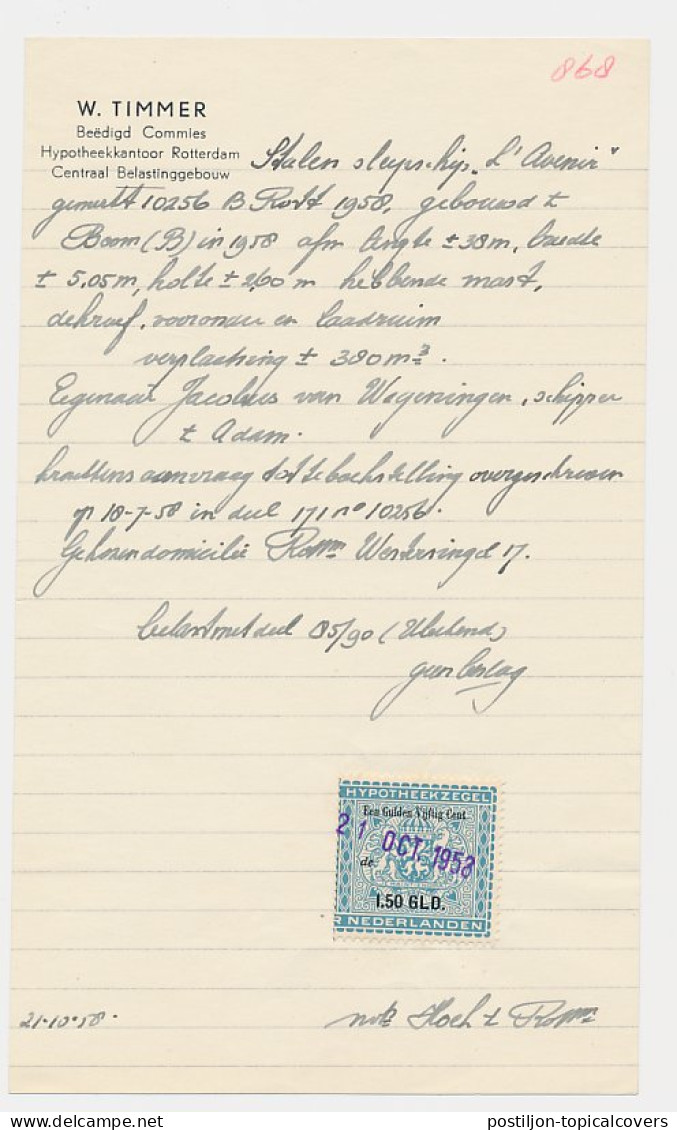 868
W. TIMMER
Beëdigd Commies
Hypotheekkantoor Rotterdam
Centraal Belastinggebouw
Stalen sleepschip „L'Avenir"
gemerkt 10256 B Rott 1958, gebouwd t
Boom (B) in 1958 afm lengte ± 38m, breedte
± 5,05m, holte ± 2,60 m hebbende mast,
dekroef, vooronder en laadruim
verplaatsing ± 380 m³.
Eigenaar Jacobus van Wageningen, schipper
t Adam.
krachtens aanvraag tot teboekstelling overgeschreven
op 18-7-58 in deel 171 no 10256.
Gekozen domicilie Rdam Westersingel 17.
belast met deel 85/90
geen beslag
HYPOTHEEKZEGEL
Een Gulden Vijftig Cent
21 OCT. 1958
de
1.50 GLD.
R NEDERLANDEN
21-10-58.
nots Hoch t Rdam
postiljon-topicalcovers